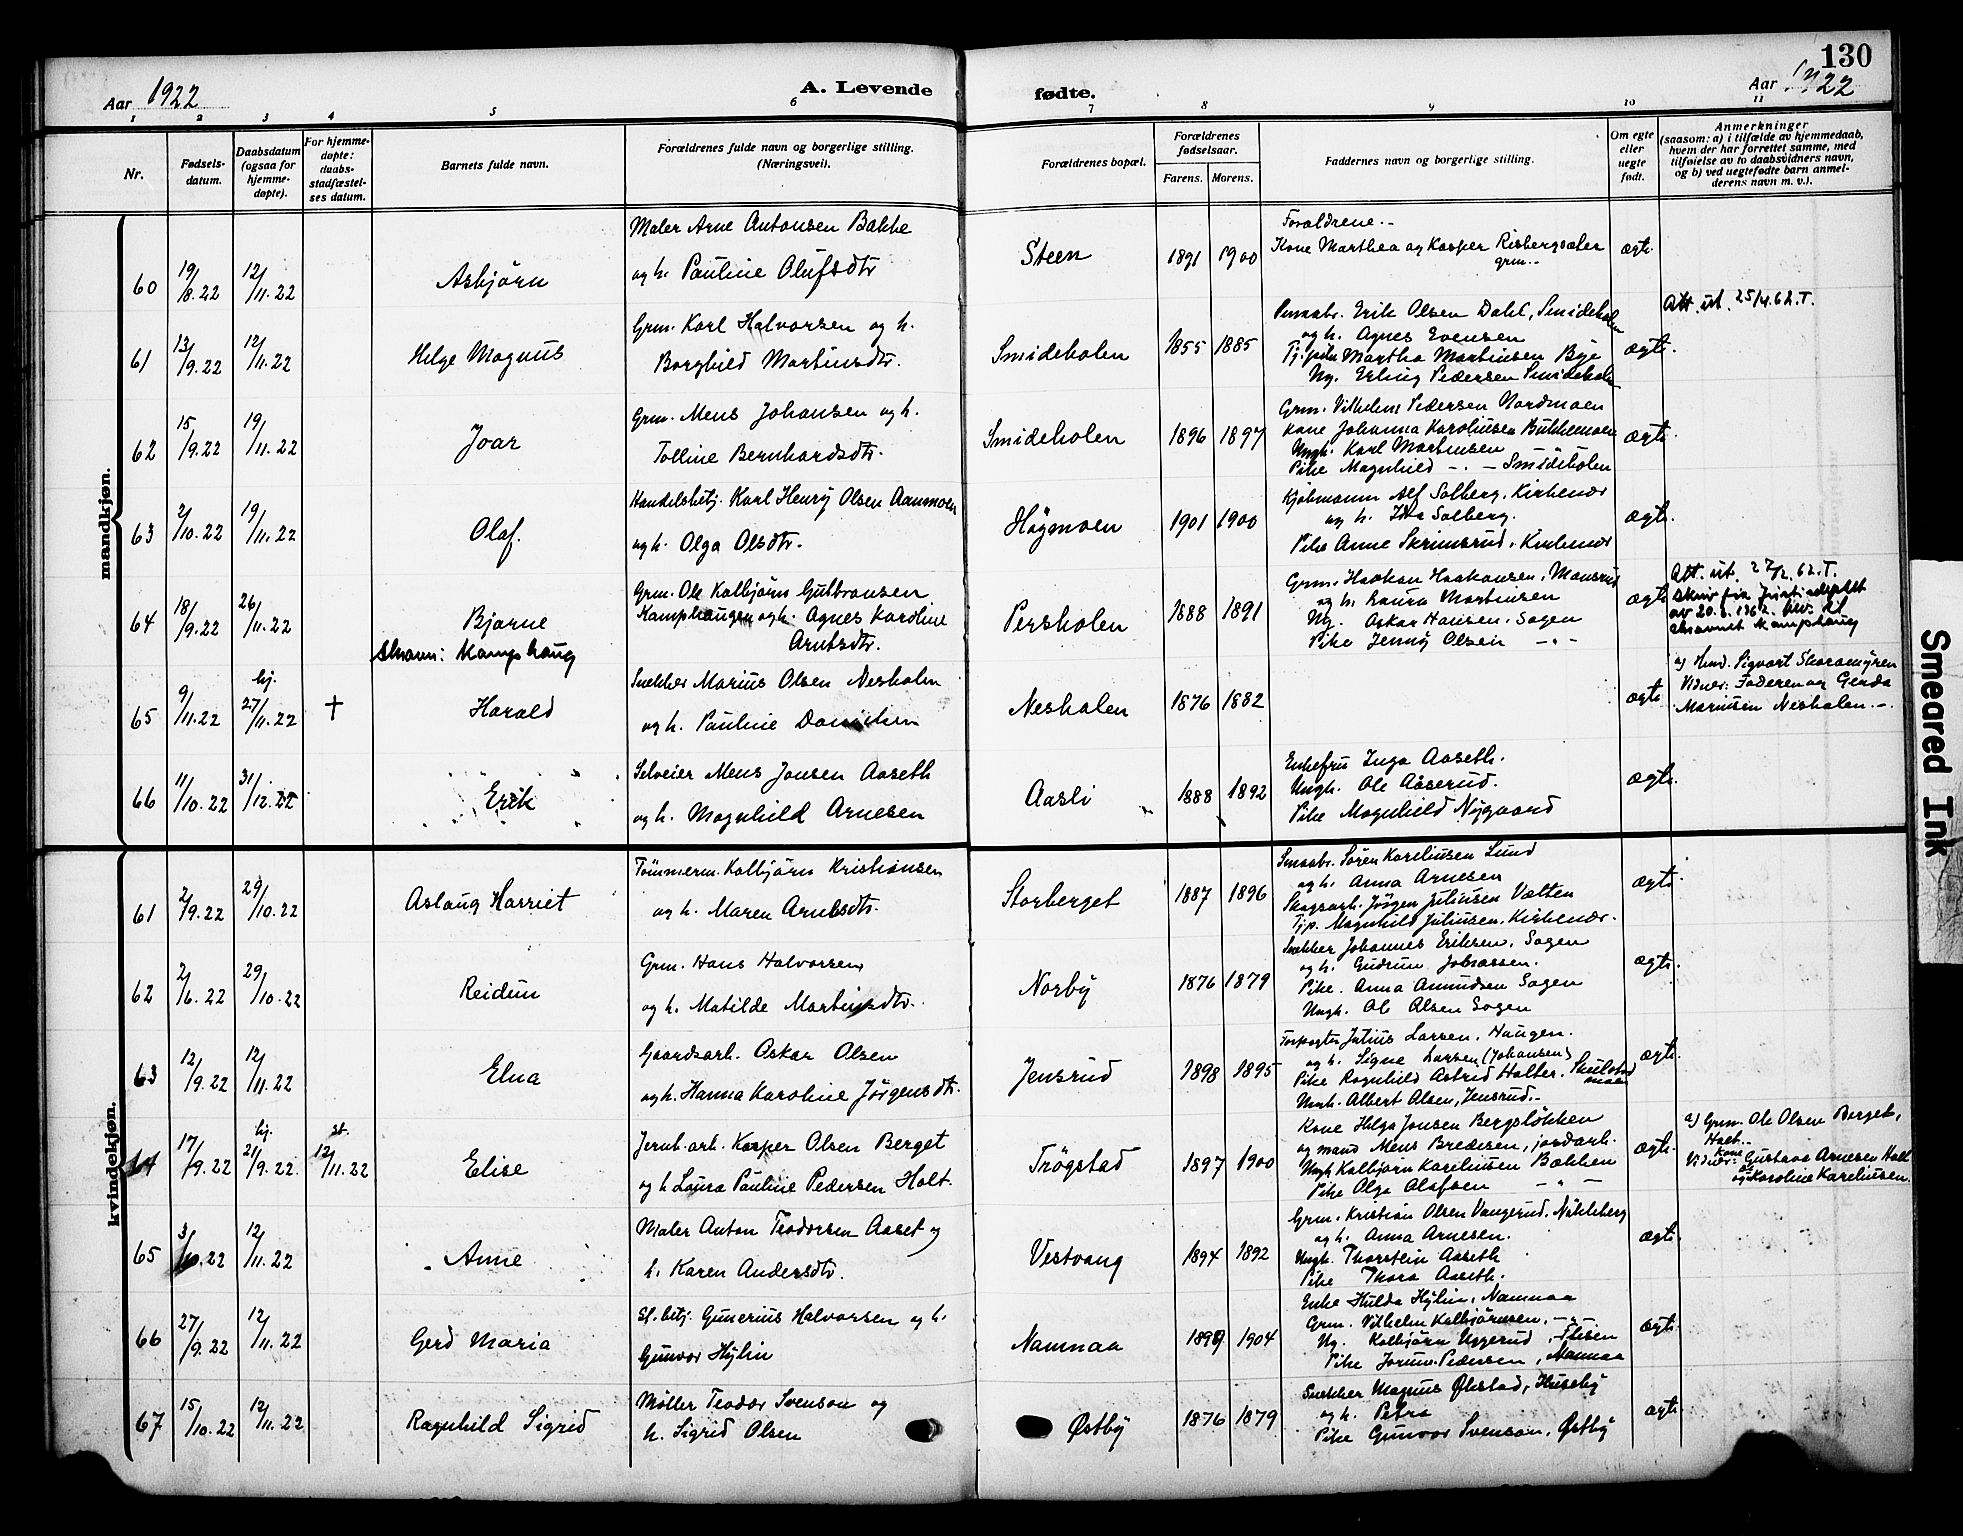 130
Aar 1922
A. Levende
fødte.
Aar 1922
1 2 3 4 5 6 7 8 9 10 11
Nr.
Fødsels-
datum.
Daabsdatum
(ogsaa for
hjemme-
døpte).
For hjemme-
døpte:
daabs-
stadfæstel-
ses datum.
Barnets fulde navn.
Forældrenes fulde navn og borgerlige stilling.
(Næringsvei).
Forældrenes bopæl.
Forældrenes
fødselsaar.
Farens. Morens.
Faddernes navn og borgerlige stilling.
Om egte
eller
uegte
født.
Anmerkninger
(saasom: a) i tilfælde av hjemmedaab,
hvem der har forrettet samme, med
tilføielse av to daabsvidners navn,
og b) ved uegtefødte barn anmel-
derens navn m. v.).
mandkjøn.
60 19/8.22 12/11.22 Asbjörn
Maler Arne Antonsen Bakke
og h. Pauline Olufsdtr
Steen 1891 1900
Forældrene.-
Kone Marthea og Kasper Risbergsæter
grm.-
ægte
61 13/9.22 12/11.22 Helge Magnus
Grm. Karl Halvorsen og h.
Borghild Martinsdtr.
Smideholen 1855 1885
Smaabr. Erik Olsen Dahl, Smideholen
og h. Agnes Evensen
Tj.pike Martha Martinsen Bye
Ug. Erling Pedersen Smideholen
ægte.
Att. ut. 25/4.62.T.
62 15/9.22 19/11.22 Joar
Grm. Mens Johansen og h.
Tolline Bernhardsdtr.
Smideholen 1896 1897
Grm. Vilhelm Pedersen Nordmoen
Kone Johanna Karoliusen Bukkemoen
Ungk. Karl Martinsen
Pike Magnhild -.- Smideholen
ægte
63 2/10.22 19/11.22 Olaf.
Handelsbetj. Karl Henry Olsen Aanmoen
og h. Olga Olsdtr.
Högmoen 1901 1900
Kjöbmann Alf Solberg, Kirkenær
og h. Ida Solberg.
Pike Anne Skrimsrud, Kirkenær
ægte.
64 18/9.22 26/11.22 Bjarne
Slnavn: Kamphaug
Grm. Ole Kolbjörn Gulbransen
Kamphaugen og h. Agnes Karoline
Arntsdtr.
Persholen 1888 1891
Grm. Haakon Haakonsen, Monsrud
og h. Laura Martinsen
Ug. Oskar Hansen, Sogen
Pike Jenny Olsen -"-
ægte
Att. ut. 27/2.62.T.
Skriv fra Justisdeptet
Kamphaug
65 9/11.22 hj. 27/11.22 † Harald
Snekker Marius Olsen Nesholen
og h. Pauline Danielsen
Nesholen 1876 1882
ægte
a) Hmd. Sigvart Skaramyren
Vidner: Faderen og Gerda
Mariusen Nesholen.-
66 11/10.22 31/12.22 Erik
Selveier Mens Jonsen Aaseth
og h. Magnhild Arnesen
Aasli 1888 1892
Enkefru Inga Aaseth.
Ungk. Ole Aaserud.
Pike Magnhild Nygaard
ægte
kvindekjøn.
61 2/9.22 29/10.22 Aslaug Harriet
Tömmerm. Kolbjörn Kristiansen
og h. Maren Arntsdtr.
Storberget 1887 1896
Smaabr. Sören Kareliusen Lund
og h. Anna Arnesen
Skogsarb. Jörgen Juliusen Vatten
Tjp. Magnhild Juliusen, Kirkenær.
ægte
62 2/6.22 29/10.22 Reidun
Grm. Hans Halvorsen
og h. Matilde Martinsdtr.
Norby 1876 1879
Snekker Johannes Eriksen, Sogen
og h. Gudrun Johnassen.
Pike. Anna Amundsen Sogen
Ungk. Ole Olsen Sogen
ægte.
63 12/9.22 12/11.22 Elna
Gaardsarb. Oskar Olsen
og h. Hanna Karoline Jörgensdtr.
Jensrud 1898 1895
Forpagter Julius Larsen, Haugen.
og h. Signe Larsen (Johansen)
Pike Ragnhild Astrid Halter. Skulstad
moen
Ungk. Albert Olsen, Jensrud.-
ægte.
64 17/9.22 hj. 21/9.22. st. 12/11.22 Elise
Jernb.arb. Kasper Olsen Berget
og h Laura Pauline Pedersen Holt.
Trögstad 1897 1900
Kone Helga Jonsen Bergslökken
og mand Mens Bredesen, jordarb.
Ungk Kolbjörn Kareliusen Bakken
Pike Olga Olafsen -"-
ægte.
a) Grm. Ole Olsen Berget,
Holt.-
Vidner: Kone Gustava Arnesen Holt
og Karoline Kareliusen.
65 3/10.22 12/11.22 Anne
Maler Anton Teodorsen Aaset og
h. Karen Andersdtr.
Vestvang 1894 1892
Grm. Kristian Olsen Vangerud, Nökleberg
og h. Anna Arnesen.
Ungk. Thorstein Aaseth
Pike Thora Aaseth.
ægte.
66 27/9.22 12/11.22 Gerd Maria
St. betj. Gunerius Halvorsen og h.
Gunvor Hylin
Namnaa 1899 1904
Enke Hulda Hylin, Namnaa
Grm. Vilhelm Kolbjörnsen, -"-
Ug. Kolbjörn Uggerud, Flisen
Pike Jorunn Pedersen, Namnaa
ægte.
67 15/10.22 12/11.22 Ragnhild Sigrid
Møller Teodor Svenson og
h. Sigrid Olsen
Østby 1876 1879
Snekker Magnus Ølstad, Huseby
og h. Petra
Pike Gunvor Svenson, Østby
ægte.
Smeared Ink